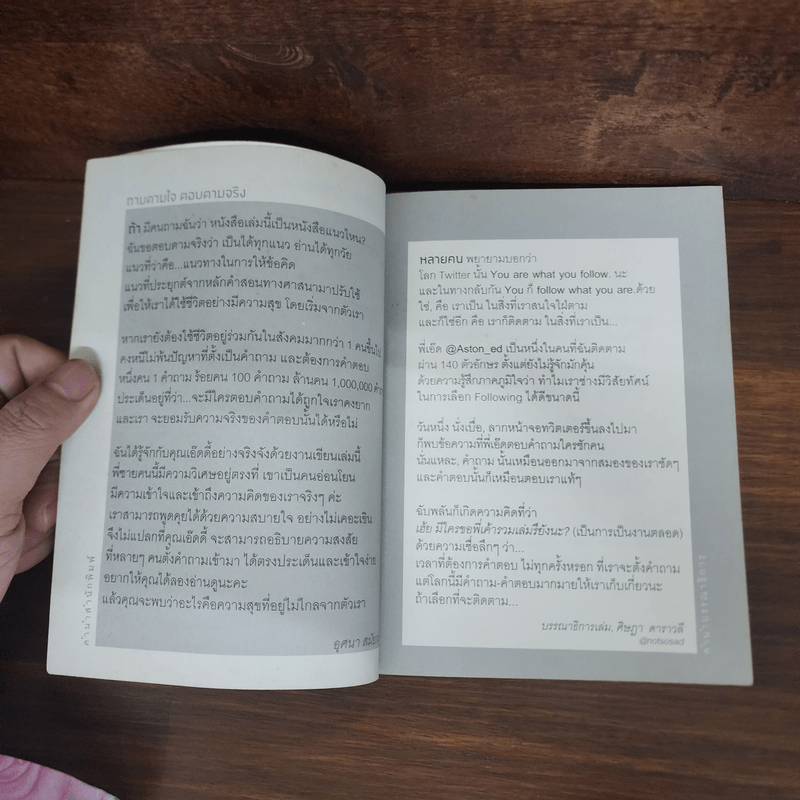 ถามตามใจ ตอบตามจริง
ถ้า มีคนถามฉันว่า หนังสือเล่มนี้เป็นหนังสือแนวไหน?
ฉันขอตอบตามจริงว่า เป็นได้ทุกแนว อ่านได้ทุกวัย
แนวที่ว่าคือ...แนวทางในการให้ข้อคิด
แนวที่ประยุกต์จากหลักคำสอนทางศาสนามาปรับใช้
เพื่อให้เราได้ใช้ชีวิตอย่างมีความสุข โดยเริ่มจากตัวเรา
หากเรายังต้องใช้ชีวิตอยู่ร่วมกันในสังคมมากกว่า 1 คนขึ้นไป
คงหนีไม่พ้นปัญหาที่ตั้งเป็นคำถาม และต้องการคำตอบ
หนึ่งคน 1 คำถาม ร้อยคน 100 คำถาม ล้านคน 1,000,000 คำถาม
ประเด็นอยู่ที่ว่า...จะมีใครตอบคำถามได้ถูกใจเราคงยาก
และเรา จะยอมรับความจริงของคำตอบนั้นได้หรือไม่
ฉันได้รู้จักกับคุณเอ๊ดดี้อย่างจริงจังด้วยงานเขียนเล่มนี้
พี่ชายคนนี้มีความวิเศษอยู่ตรงที่ เขาเป็นคนอ่อนโยน
มีความเข้าใจและเข้าถึงความคิดของเราจริงๆ ค่ะ
เราสามารถพูดคุยได้ด้วยความสบายใจ อย่างไม่เคอะเขิน
จึงไม่แปลกที่คุณเอ๊ดดี้ จะสามารถอธิบายความสงสัย
ที่หลายๆ คนตั้งคำถามเข้ามา ได้ตรงประเด็นและเข้าใจง่าย
อยากให้คุณได้ลองอ่านดูนะคะ
แล้วคุณจะพบว่าอะไรคือความสุขที่อยู่ไม่ไกลจากตัวเรา
อุศนา
คำนำสำนักพิมพ์
หลายคน พยายามบอกว่า
โลก Twitter นั้น You are what you follow. นะ
และในทางกลับกัน You ก็ follow what you are.ด้วย
ใช่, คือ เราเป็น ในสิ่งที่เราสนใจใฝ่ตาม
และก็ใช่อีก คือ เราก็ติดตาม ในสิ่งที่เราเป็น...
พี่เอ๊ด @Aston_ed เป็นหนึ่งในคนที่ฉันติดตาม
ผ่าน 140 ตัวอักษร ตั้งแต่ยังไม่รู้จักมักคุ้น
ด้วยความรู้สึกภาคภูมิใจว่า ทำไมเราช่างมีวิสัยทัศน์
ในการเลือก Following ได้ดีขนาดนี้
วันหนึ่ง นั่งเบื่อ, ลากหน้าจอทวิตเตอร์ขึ้นลงไปมา
ก็พบข้อความที่พี่เอ๊ดตอบคำถามใครซักคน
นั่นแหละ, คำถาม นั้นเหมือนออกมาจากสมองของเราชัดๆ
และคำตอบนั้นก็เหมือนตอบเราแท้ๆ
ฉับพลันก็เกิดความคิดที่ว่า
เฮ้ย มีใครขอพี่เค้ารวมเล่มรึยังนะ? (เป็นการเป็นงานตลอด)
ด้วยความเชื่อลึกๆ ว่า...
เวลาที่ต้องการคำตอบ ไม่ทุกครั้งหรอก ที่เราจะตั้งคำถาม
แต่โลกนี้มีคำถาม-คำตอบมากมายให้เราเก็บเกี่ยวนะ
ถ้าเลือกที่จะติดตาม...
บรรณาธิการเล่ม, ศิษฎา ดาราวลี
@notsosad
คำนำบรรณาธิการ